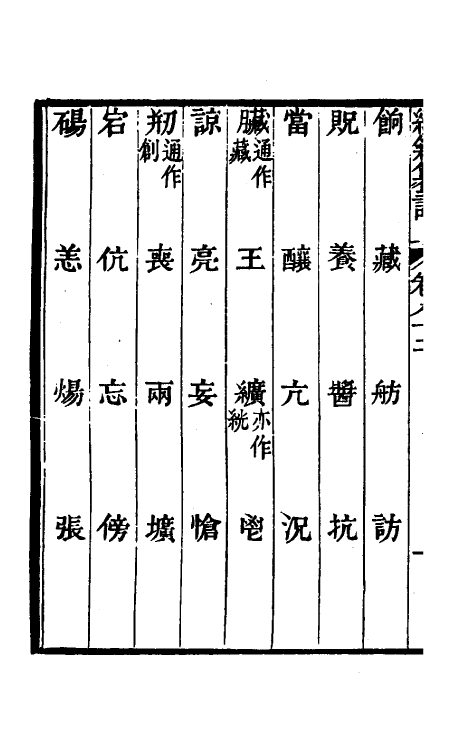 餉 藏 舫 訪
貺 養 醬 抗
當 釀 亢 況
臟通作藏 王 纊亦作絖 鬯
諒 亮 妄 愴
刱通作創 喪 兩 壙
宕 伉 忘 傍
碭 恙 煬 張